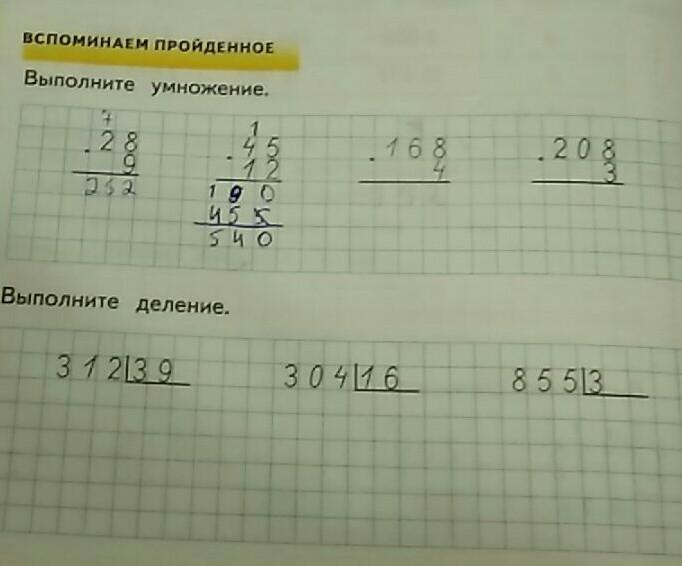 ВСПОМИНАЕМ ПРОЙДЕННОЕ
Выполните умножение.
7 1
. 28 . 45 . 168 . 208
9 12 4 3
252 190
455
540
Выполните деление.
312 39 304 16 855 3